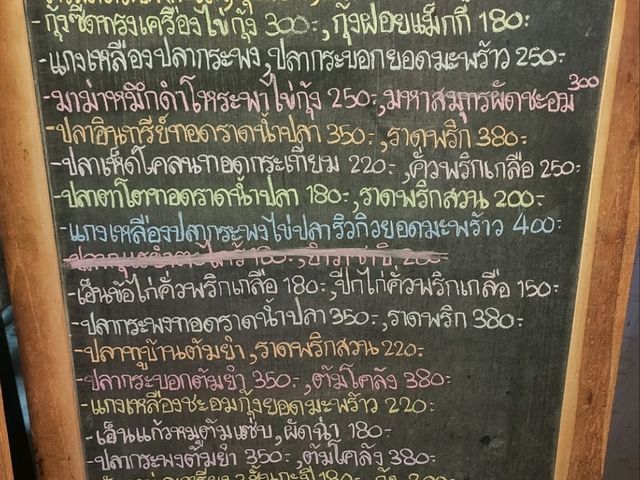 กุ้งซีดทรงเครื่องไข่กุ้ง 300.-,กุ้งฝอยแม็กกี้ 180.-
-แกงเหลืองปลากะพง,ปลากระบอกยอดมะพร้าว 250.-
-มาม่าหมึกดำโหระพาไข่กุ้ง 250.-,มหาสมุทรผัดชะอม 300
-ปลาอินทรีย์ทอดราดน้ำปลา 350.-,ราดพริก 380.-
-ปลาเห็ดโคลนทอดกระเทียม 220.-,คั่วพริกเกลือ 250.-
-ปลาตาโตทอดราดน้ำปลา 180.-,ราดพริกสวน 200.-
-แกงเหลืองปลากระพงไข่ปลาริวกิวยอดมะพร้าว 400.-
-เอ็นข้อไก่คั่วพริกเกลือ 180.-,ปีกไก่คั่วพริกเกลือ 150.-
-ปลากระพงทอดราดน้ำปลา 350.-,ราดพริก 380.-
-ปลาทูบ้านต้มยำ,ราดพริกสวน 220.-
-ปลากระบอกต้มยำ 350.-,ต้มโคล้ง 380.-
-แกงเหลืองชะอมกุ้งยอดมะพร้าว 220.-
-เอ็นแก้วหมูต้มแซ่บ,ผัดฉ่า 180.-
-ปลากระพงต้มยำ 350.-,ต้มโคล้ง 380.-